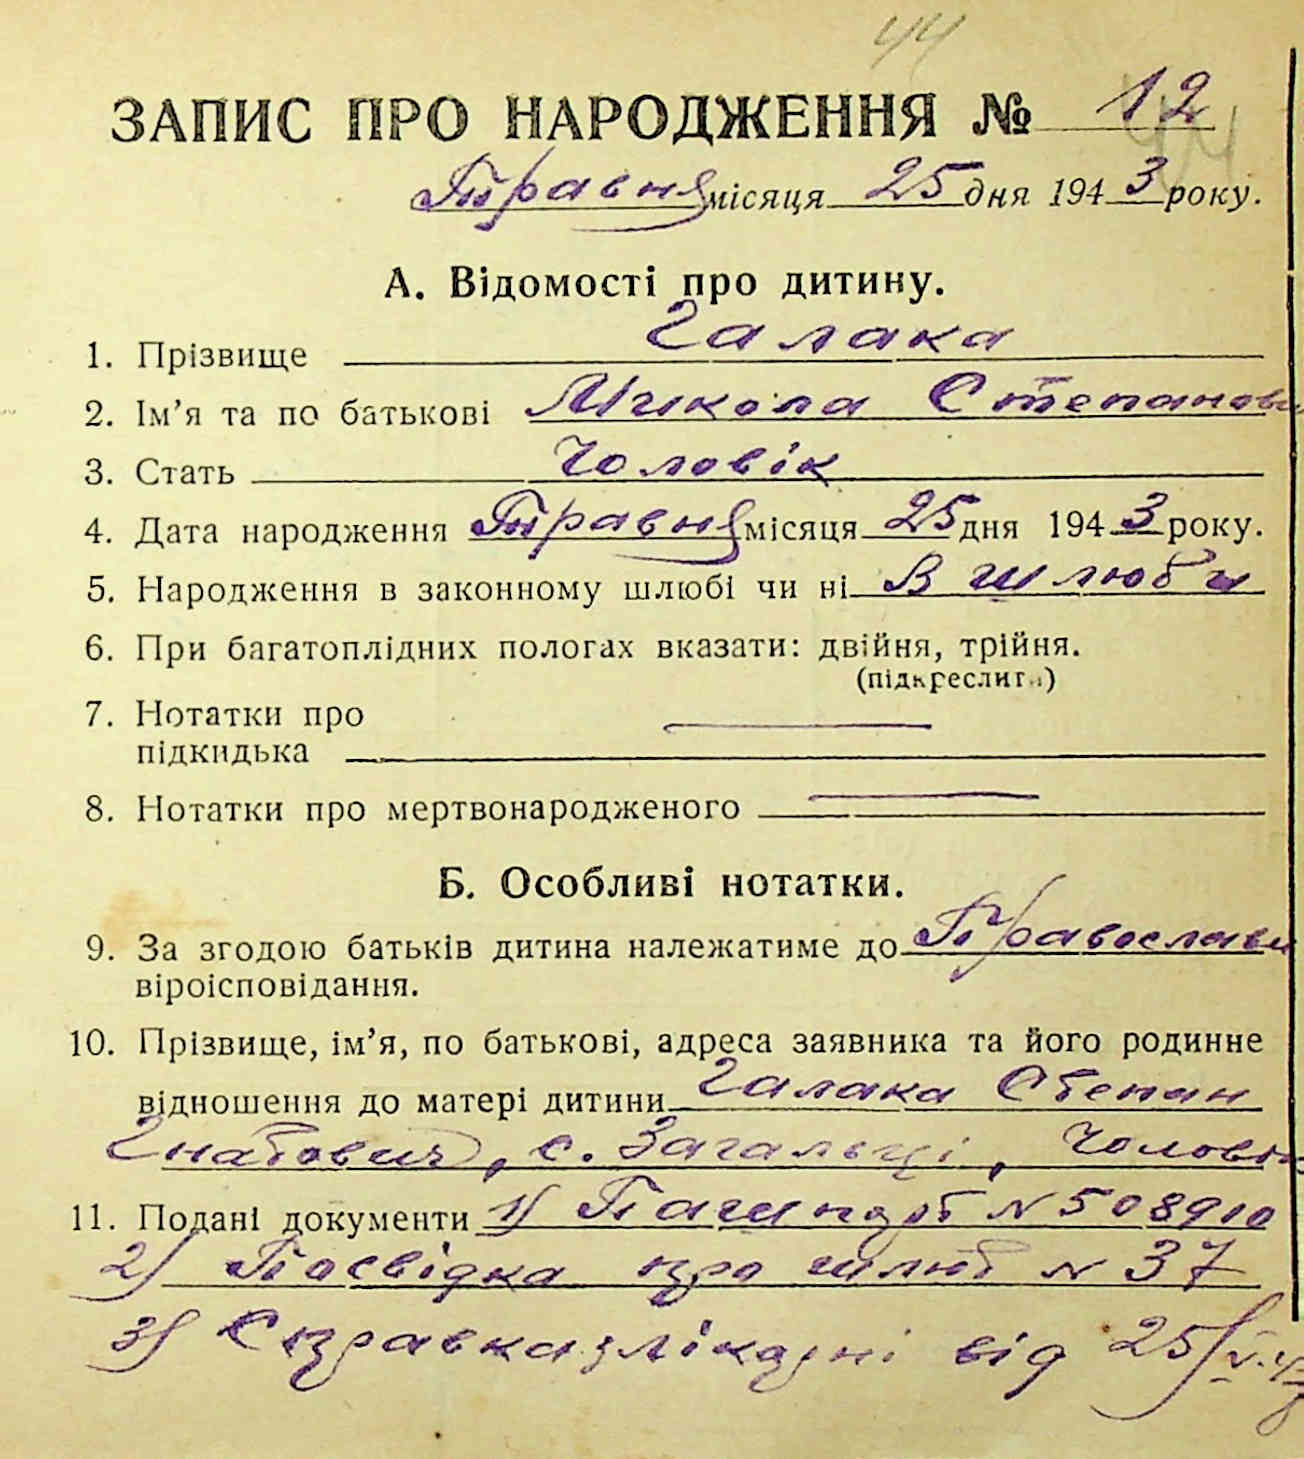 44
ЗАПИС ПРО НАРОДЖЕННЯ № 12
44
Травня місяця 25 дня 1943 року.
А. Відомості про дитину.
1. Прізвище Галака
2. Ім'я та по батькові Микола Степанови
3. Стать Чоловік
4. Дата народження Травня місяця 25 дня 1943 року.
5. Народження в законному шлюбі чи ні В шлюби
6. При багатоплідних пологах вказати: двійня, трійня.
(підкреслити)
7. Нотатки про
підкидька
8. Нотатки про мертвонародженого
Б. Особливі нотатки.
9. За згодою батьків дитина належатиме до Православн
віроісповідання.
10. Прізвище, ім'я, по батькові, адреса заявника та його родинне
відношення до матері дитини Галака Степан
Гнатович, с. Загальці, Чоловік
11. Подані документи 1) Пашпорт N 508910
2) Посвідка про шлюб N 37
3) Справка з лікарні від 25/V.43